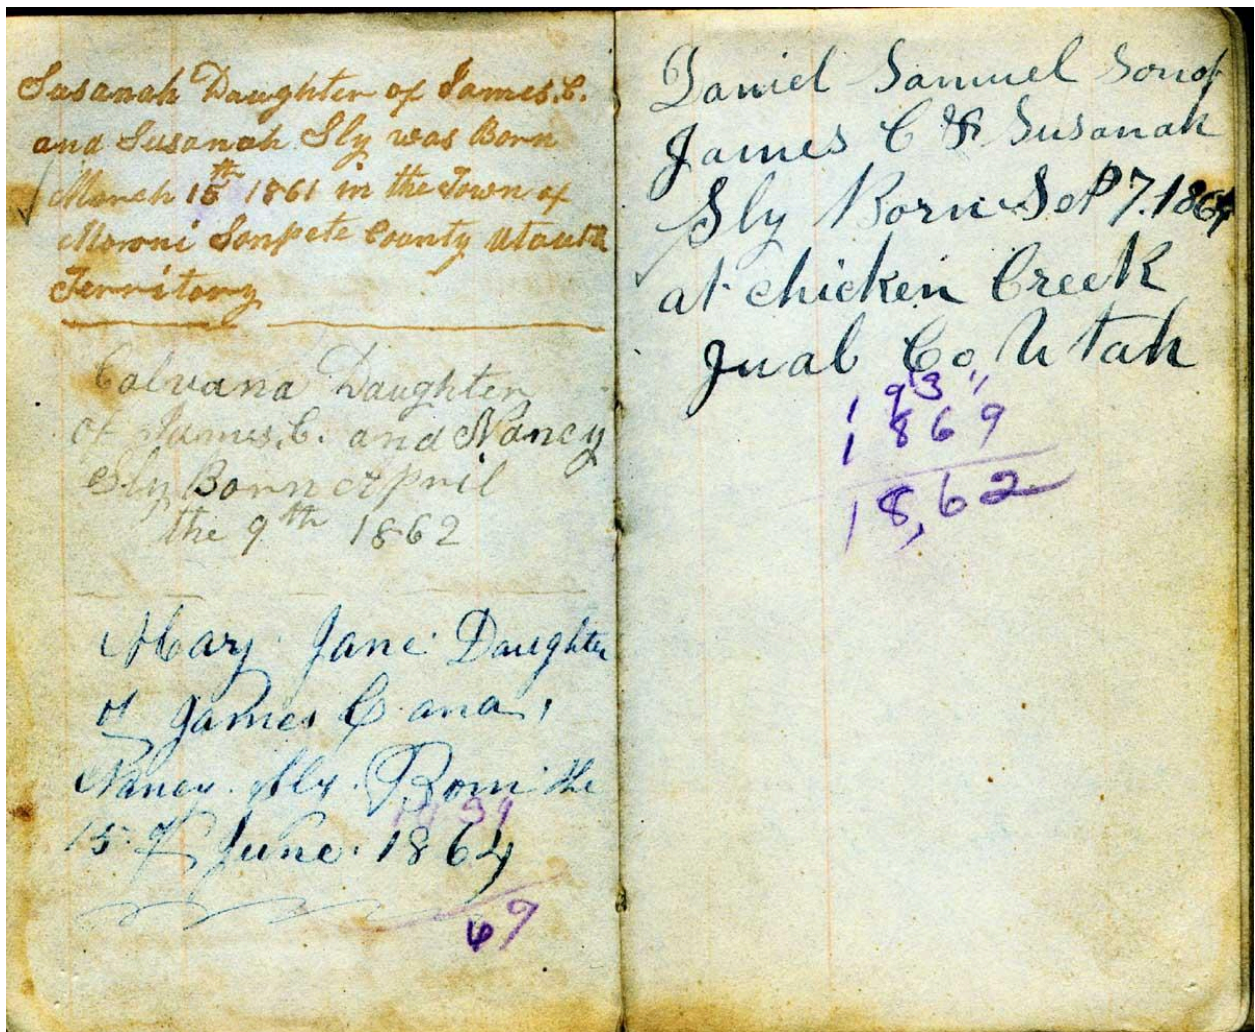 Susanah Daughter of James. C.
and Susanah Sly was Born
March 15th 1861 in the Town of
Moroni Sonpete County Utauh
Territory
Calvana Daughter
of James, C. and Nancy
Sly Born April
the 9th 1862
Mary Jane Daughter
of James C and
Nancy Sly. Born the
15 of June. 1864
69
Daniel Samuel Son of
James C & Susanah
Sly Born Sept 7. 1864
at Chicken Creek
Juab Co Utah
1869
18,62